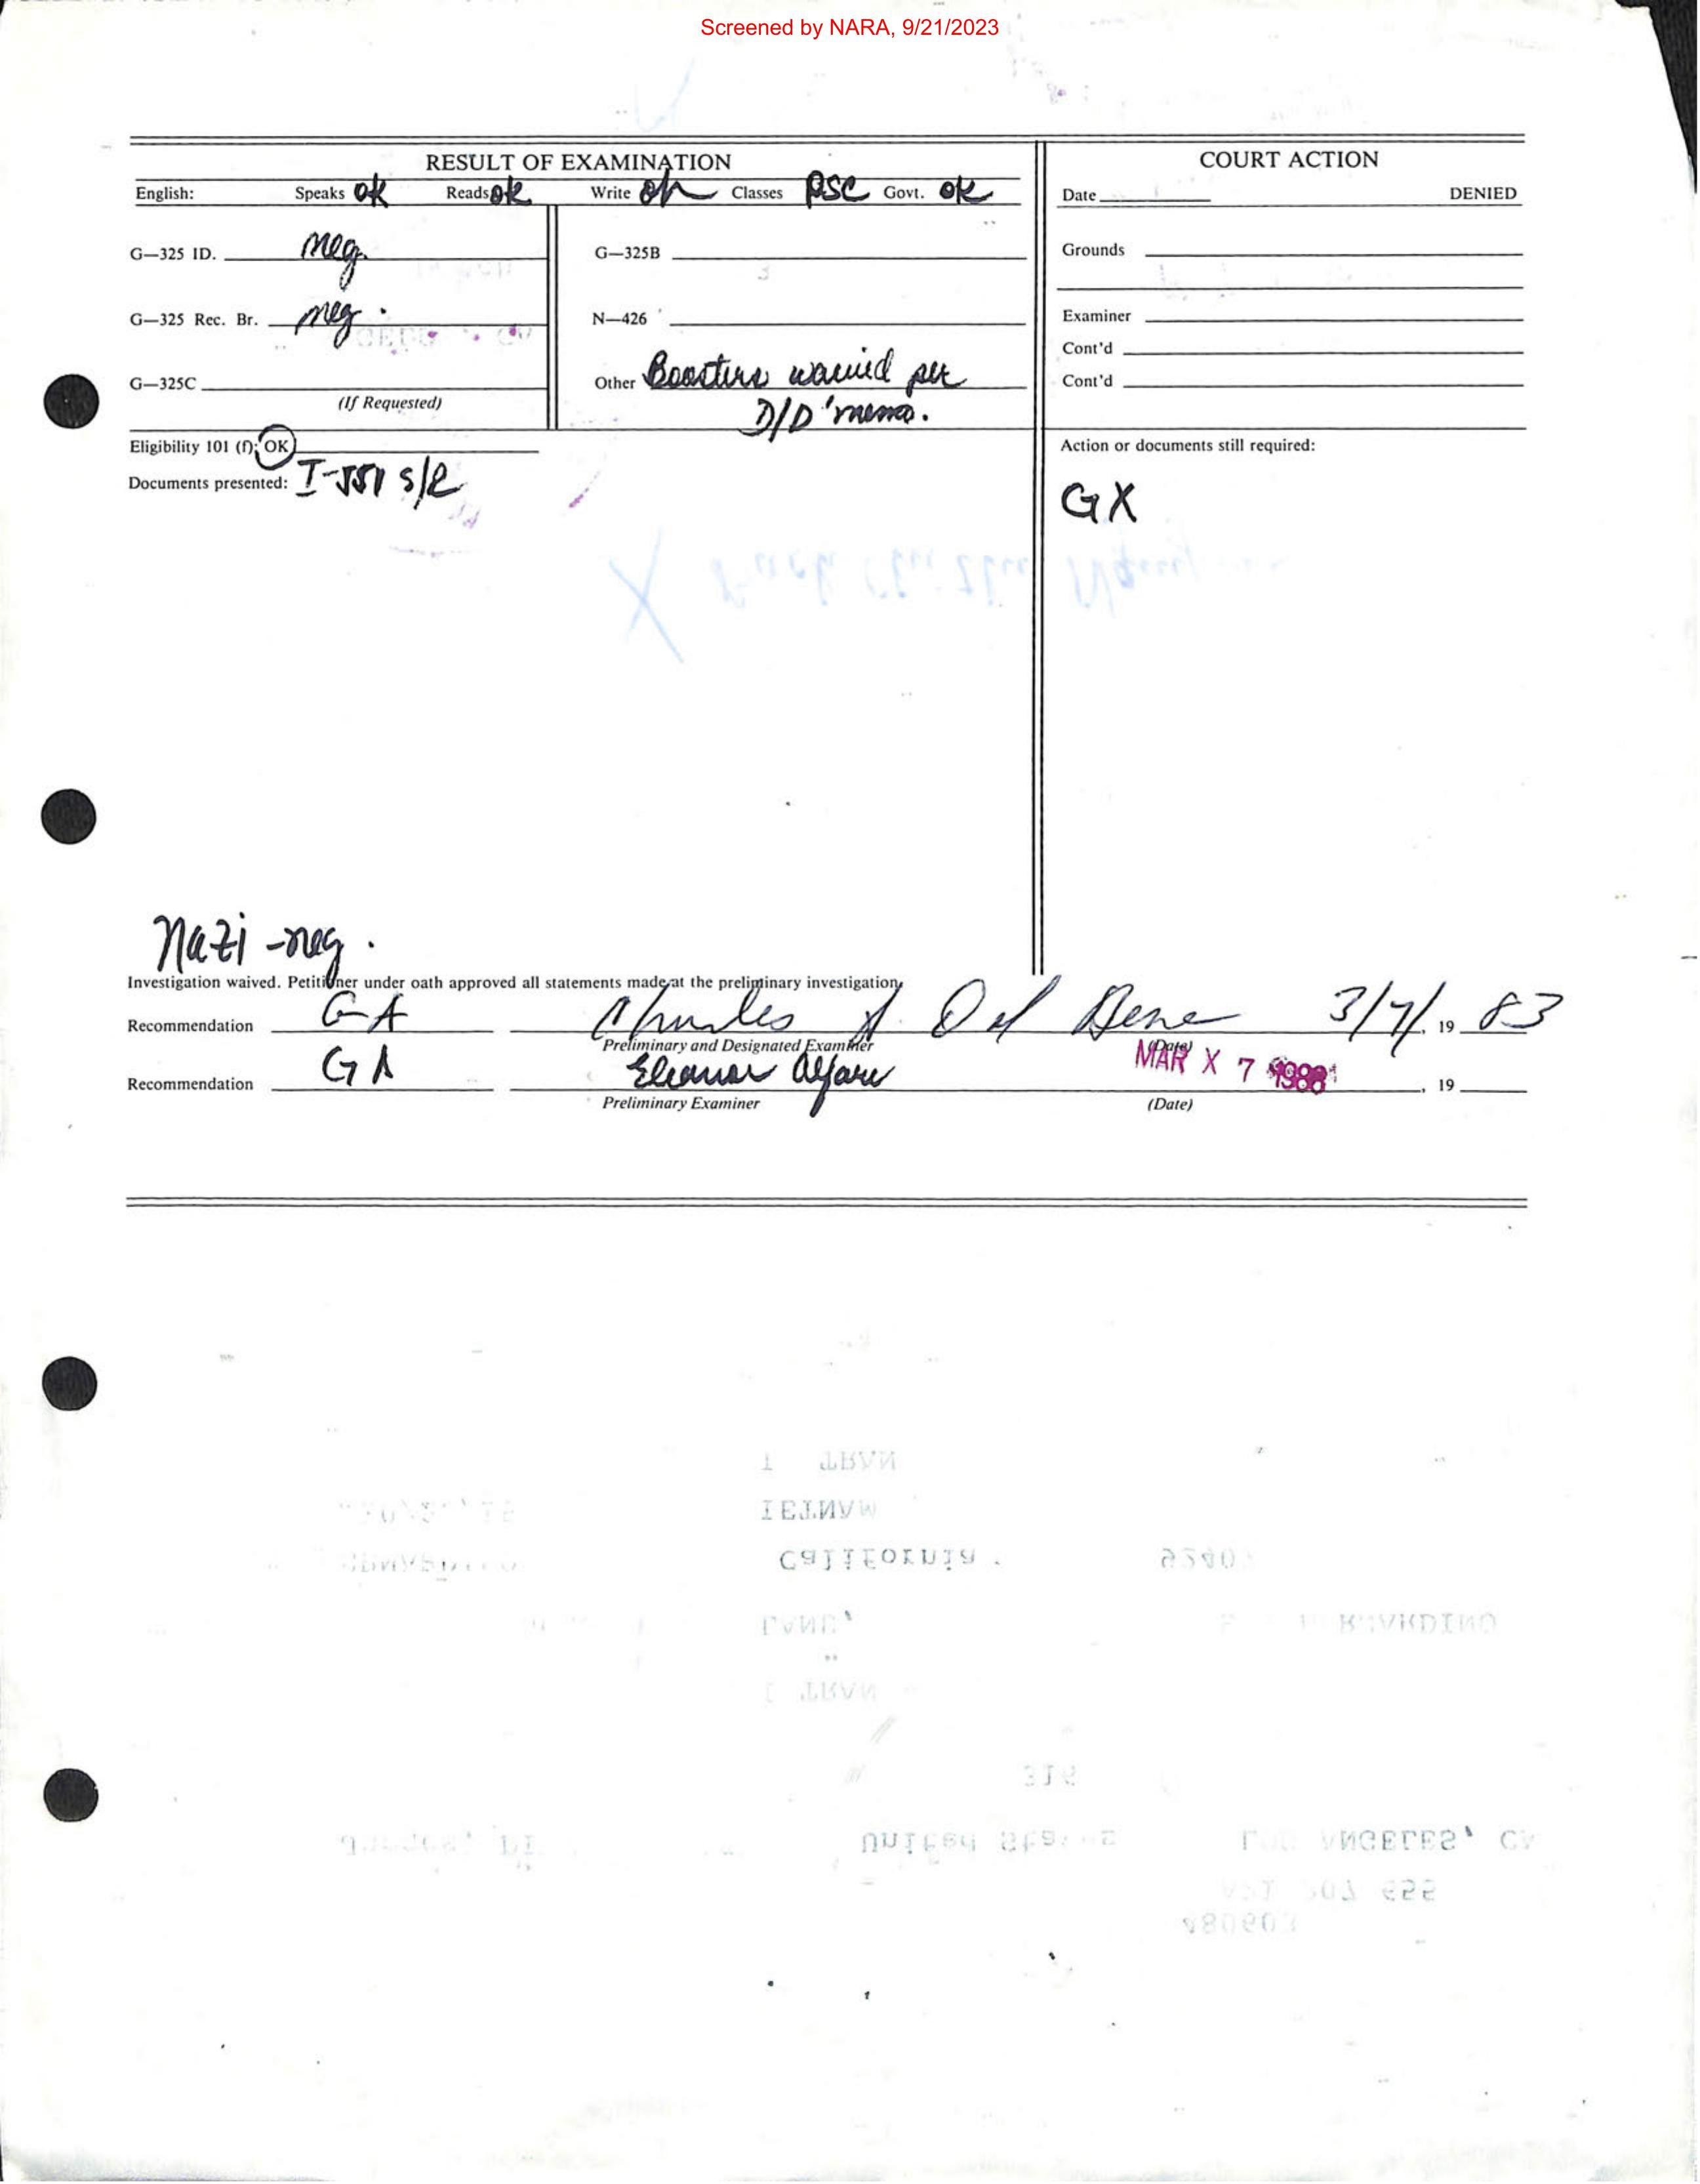 Screened by NARA, 9/21/2023
RESULT OF EXAMINATION
English: Speaks ok Reads ok Write ok Classes PSC Govt. ok
G—325 ID. neg. G—325B
G—325 Rec. Br. neg. N—426
G—325C Other Boosters waived per
(If Requested) D/D memo.
Eligibility 101 (f): OK
Documents presented: I-551 S/R
COURT ACTION
Date DENIED
Grounds
Examiner
Cont'd
Cont'd
Action or documents still required:
GX
Nazi -neg.
Investigation waived. Petitioner under oath approved all statements made at the preliminary investigation.
Recommendation GA Charles A. Del Bene 3/7/, 19 83
Preliminary and Designated Examiner (Date)
Recommendation GA Eleanor Alfaro MAR X 7 , 19
Preliminary Examiner (Date)